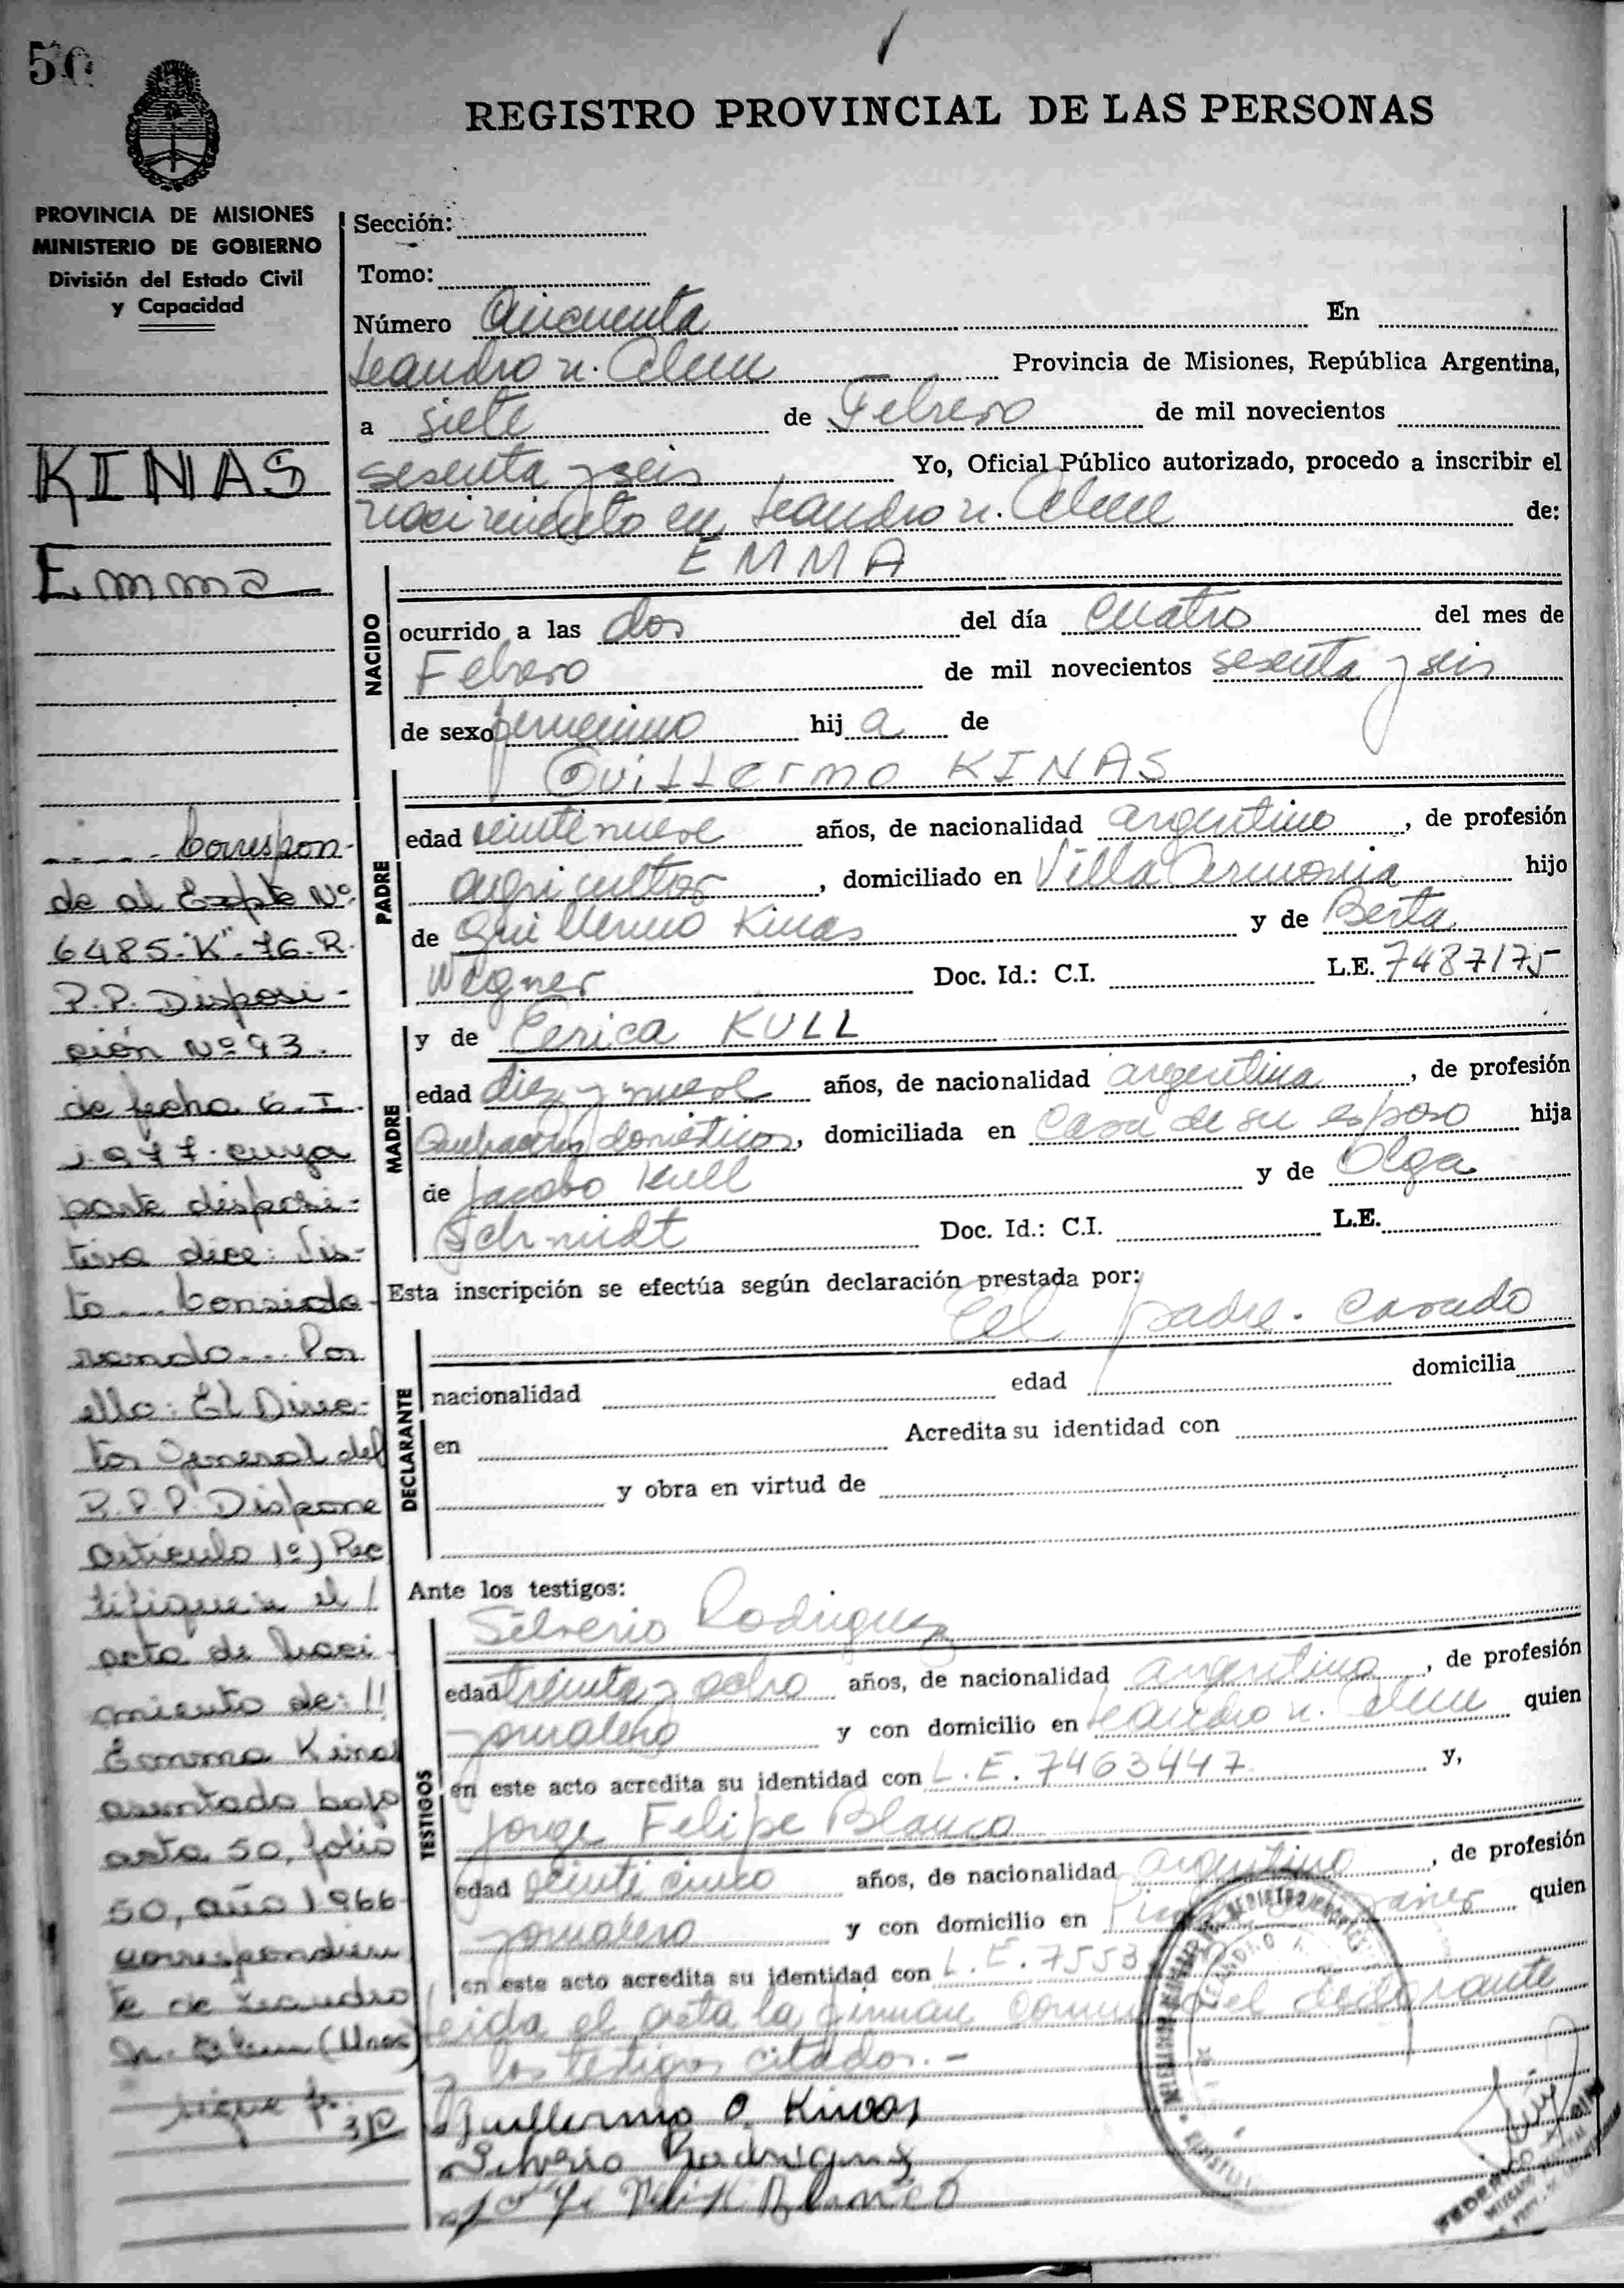 50
REGISTRO PROVINCIAL DE LAS PERSONAS
PROVINCIA DE MISIONES
MINISTERIO DE GOBIERNO
División del Estado Civil
y Capacidad
KINAS
Emma
Correspon-
de al Expte Nº
6485."K".76.R.
P.P. Disposi-
ción Nº 93.
de fecha 6.I.
1.977. cuya
parte disposi-
tiva dice: Vis-
to... Conside-
rando... Por
ello: El Direc-
tor General del
R.P.P. Dispone
Articulo 1º) Rec
tifiquese el /
acta de Naci
miento de: //
Emma Kinas
asentado bajo
acta 50, folio
50, año 1966
correspondien
te de Leandro
N. Alem (Mnes)
sigue f.
Sección:
Tomo:
Número Cincuenta En
Leandro N. Alem Provincia de Misiones, República Argentina,
a siete de Febrero de mil novecientos
sesenta y seis Yo, Oficial Público autorizado, procedo a inscribir el
nacimiento en Leandro N. Alem de:
EMMA
NACIDO
ocurrido a las dos del día cuatro del mes de
Febrero de mil novecientos sesenta y seis
de sexo femenino hija de
Guillermo KINAS
PADRE
edad veintinueve años, de nacionalidad argentino, de profesión
agricultor, domiciliado en Villa Armonia hijo
de Guillermo Kinas y de Berta
Wegner Doc. Id.: C.I. L.E. 7487175
y de Erica KULL
MADRE
edad diez y nueve años, de nacionalidad argentina, de profesión
Quehaceres domésticos, domiciliada en Casa de su esposo hija
de Jacobo Kull y de Olga
Schmidt Doc. Id.: C.I. L.E.
Esta inscripción se efectúa según declaración prestada por:
El padre. casado
DECLARANTE
nacionalidad edad domicilia
en Acredita su identidad con
y obra en virtud de
Ante los testigos:
TESTIGOS
Silverio Rodriguez
edad treinta y ocho años, de nacionalidad argentino, de profesión
jornalero y con domicilio en Leandro N. Alem quien
en este acto acredita su identidad con L.E. 7463447 y,
Jorge Felipe Blanco
edad veinticinco años, de nacionalidad argentino, de profesión
jornalero y con domicilio en quien
en este acto acredita su identidad con L.E. 7553
Leida el acta la firman el declarante
y los testigos citados.-
Guillermo Kinas
Silverio Rodriguez
Blanco
FEDERICO